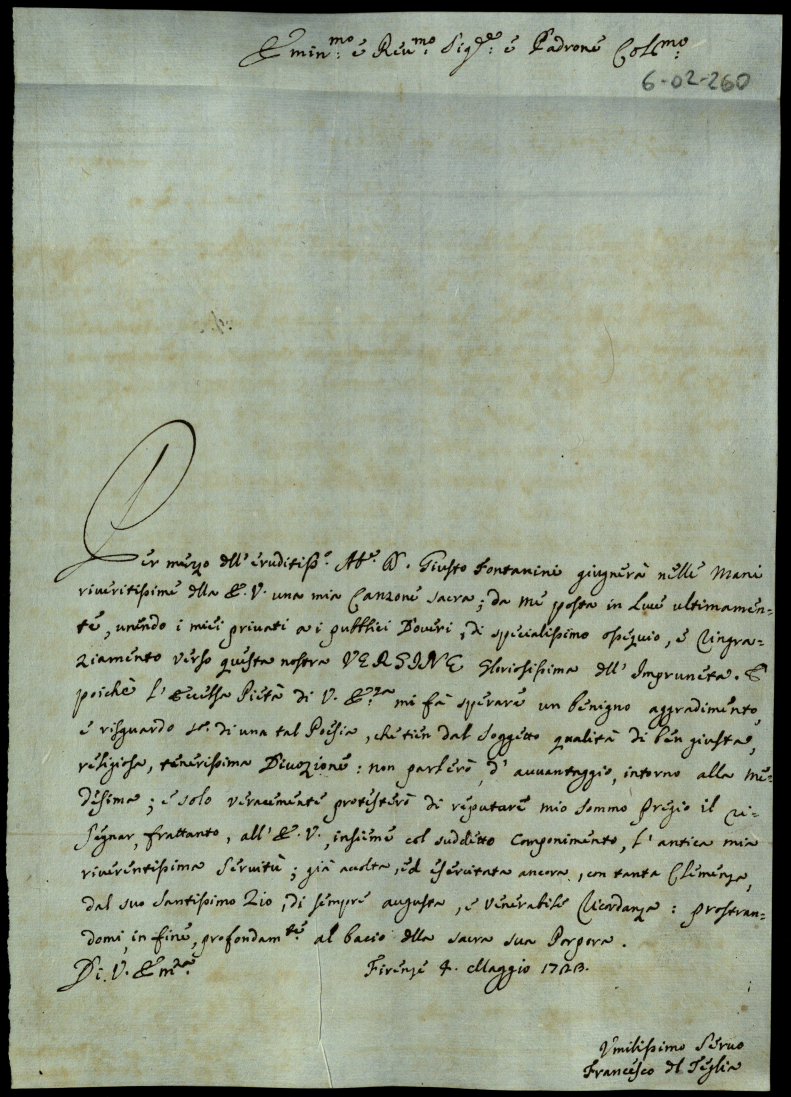 Emin.mo è Reu.mo Sig.re è Padronè Col.mo
6-02-260
Per mezzo dell' eruditiss.o Ab.e D. Giusto Fontanini giugnerà nelle Mani
riveritissime della E. V. una mia Canzone sacra; da me posta in Luce ultimamen=
te, unendo i miei privati a i pubblici Doveri, di specialissimo ossequio, e ringra=
ziamento verso questa nostra VERGINE Gloriosissima dell' Impruneta. E
poichè l'eccelsa Pietà di V. E.za mi fà sperare un benigno aggradimento,
e risguardo di una tal Poesia, che tien dal Soggetto qualità di ben giusta,
religiosa, tenerissima Divozione: non parlerò, d' avvantaggio, intorno alla me=
desima; e solo veracemente protesterò di reputare mio sommo Pregio il ri=
segnar, frattanto, all' E. V., insieme col suddetto componimento, l' antica mia
riverentissima Servitù; già accolta, ed esercitata ancora, con tanta Clemenza,
dal suo Santissimo Zio, di sempre augusta, e venerabile Ricordanza: prostran=
domi, in fine, profondam.te al bacio della sacra sua Porpora.
Di V. Em.za Firenze 4. Maggio 1723.
Vmilissimo Servo
Francesco del Teglia